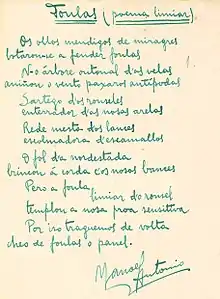 Foulas (poema limiar).
Os ollos mendigos de miragres
botáronse a fender foulas
No árbore outonal das velas
aniñou o vento paxaros antípodas
Sartego dos ronseles
enterrador das nosas arelas
Rede mesta dos lanses
esmolmadora d'escamallos
O fol da nordestada
brincou á corda cos nosos bances
Pero a foula
limiar do ronsel
templou a nosa proa sensitiva
Por iso traguemos de volta
cheo de foulas o panel.
Manoel Antonio